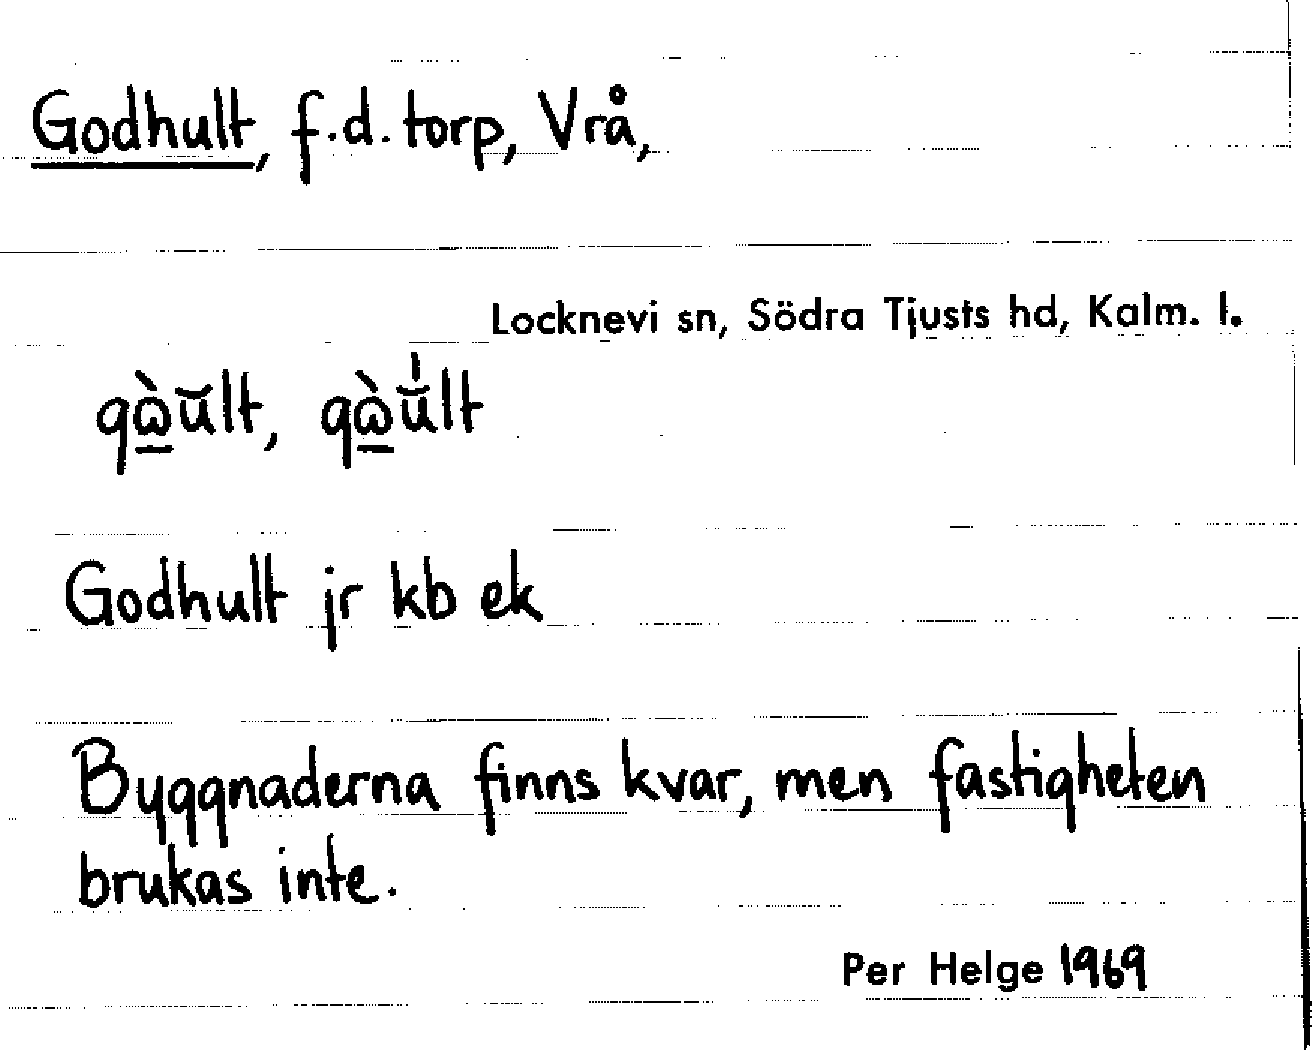 Godhult, f.d. torp, Vrå,
Locknevi sn, Södra Tjusts hd, Kalm. l.
gɷ̠̀ŭlt, gɷ̠̀ŭ̍lt
Godhult jr kb ek
Byggnaderna finns kvar, men fastigheten
brukas inte.
Per Helge 1969